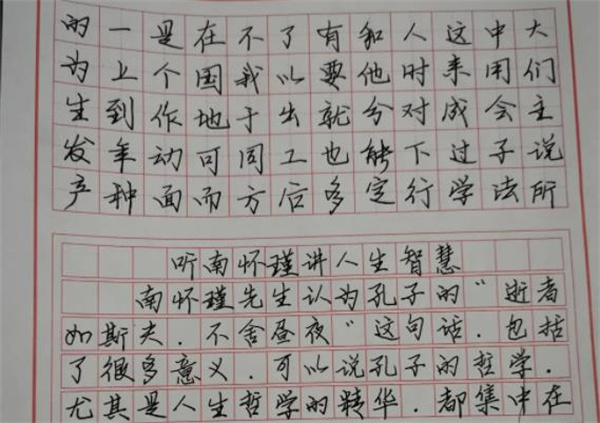 的一是在不了有和人这中大
为上个国我以要他时来用们
生到作地于出就分对成会主
发年动可同工也能下过子说
产种面而方后多定行学法所
听南怀瑾讲人生智慧
南怀瑾先生认为孔子的“逝者
如斯夫.不舍昼夜”这句话.包括
了很多意义.可以说孔子的哲学.
尤其是人生哲学的精华.都集中在